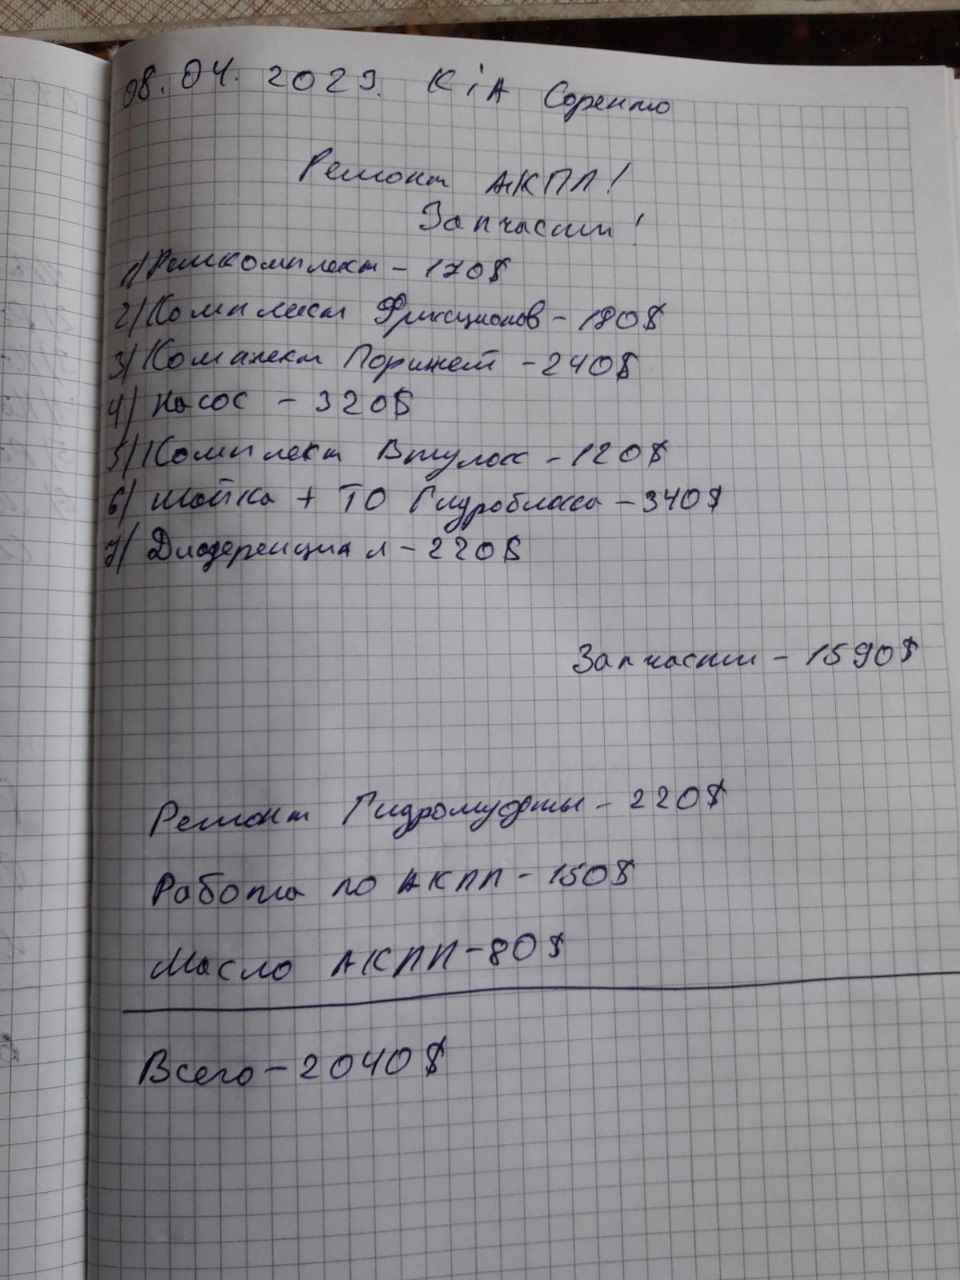 08.04.2023. KiA Соренто
Ремонт АКПП!
Запчасти!
1) Ремкомплект - 170$
2) Комплект Фрикционов - 180$
3) Комплект Поршней - 240$
4) Насос - 320$
5) Комплект Втулок - 120$
6) Мойка + ТО Гидроблока - 340$
7) Диференциал - 220$
Запчасти - 1590$
Ремонт Гидромуфты - 220$
Работа по АКПП - 150$
Масло АКПП - 80$
Всего - 2040$